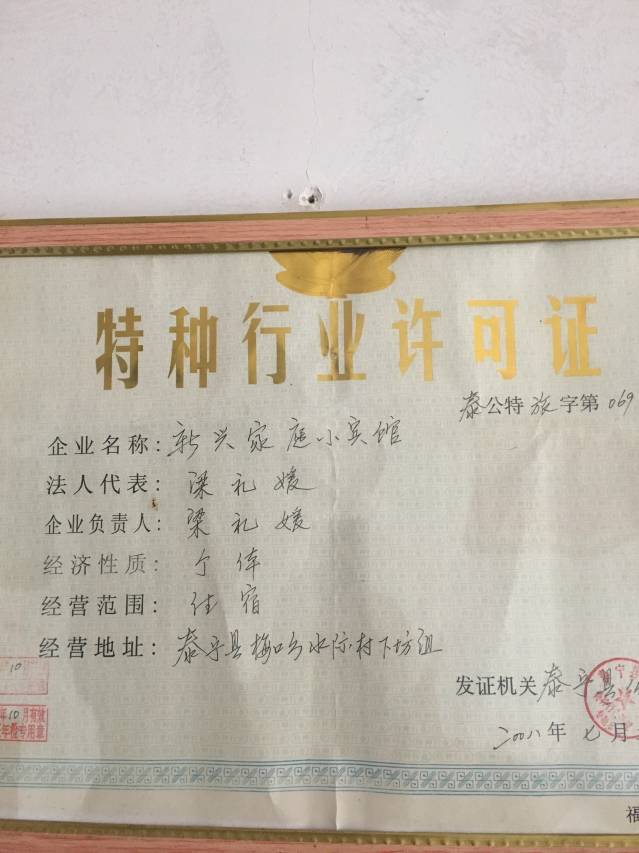 特种行业许可证
泰公特旅字第069
企业名称：新兴家庭小宾馆
法人代表：梁礼媛
企业负责人：梁礼媛
经济性质：个体
经营范围：住宿
经营地址：泰宁县梅口乡水际村下坊组
发证机关 泰宁县
二00八年 七月
10
年10月有效
年检专用章
福